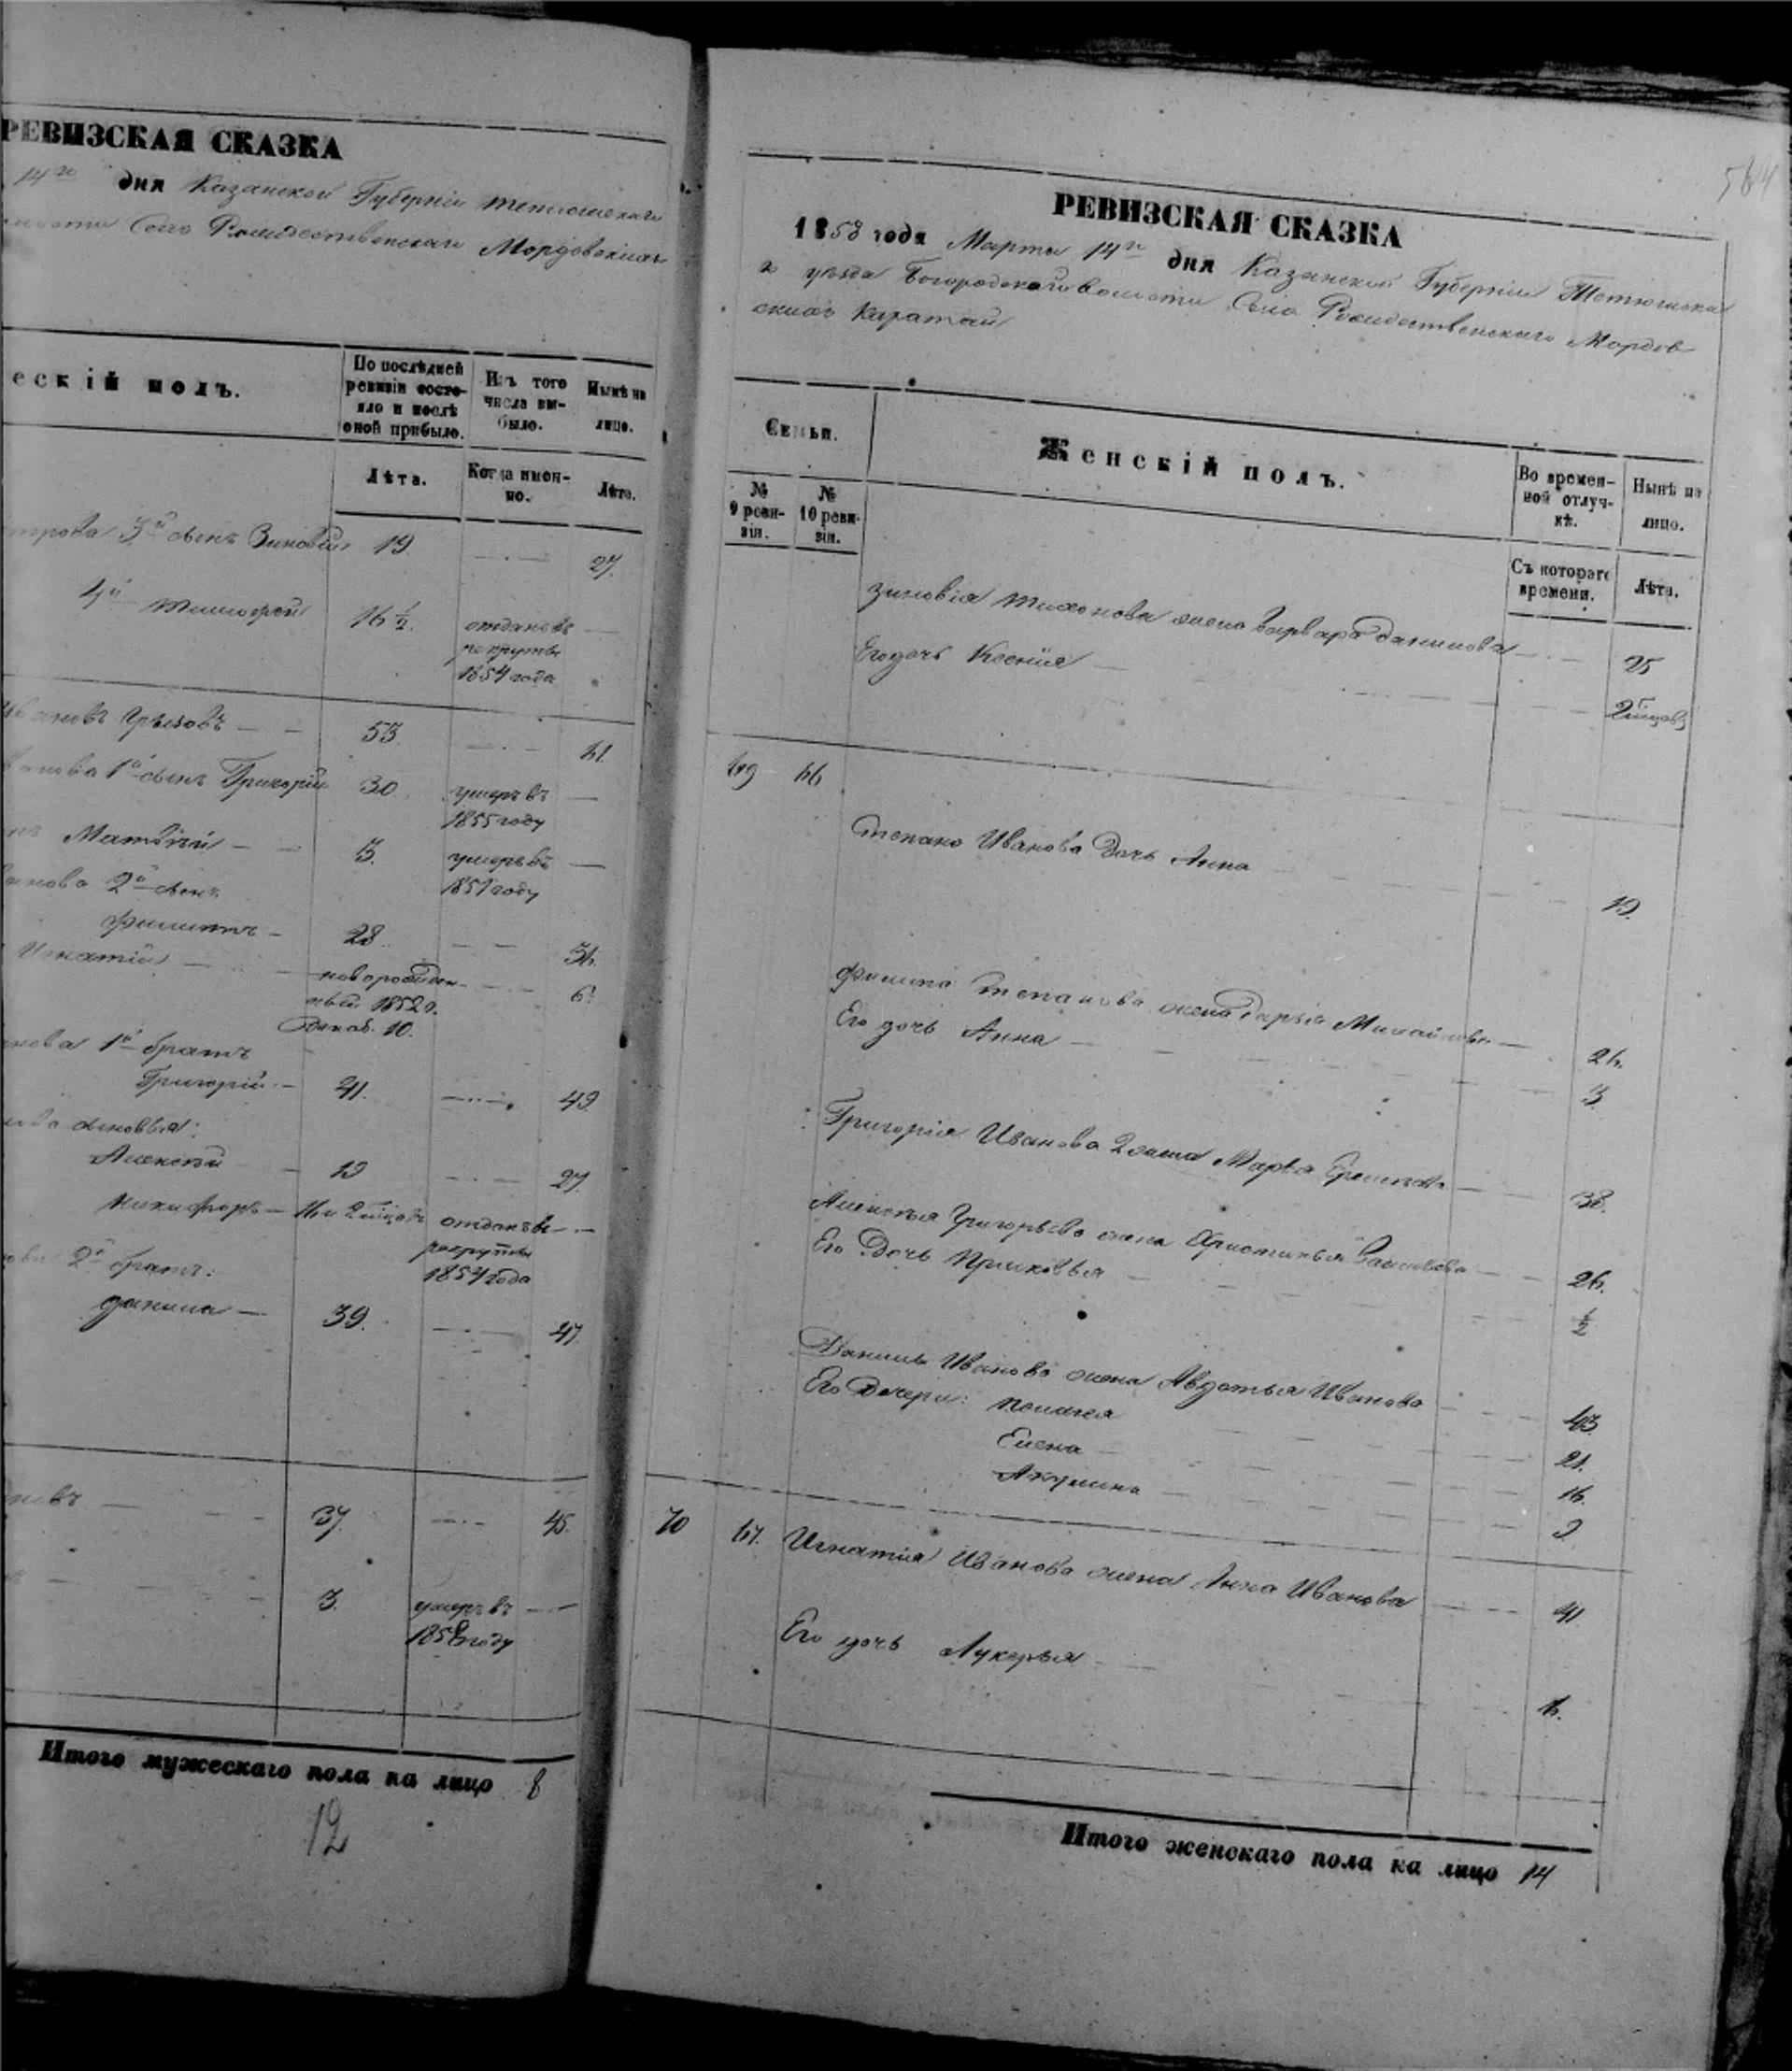 РЕВИЗСКАЯ СКАЗКА
14го дня Казанской Губерніи Тетюшскаго
Село Рождественскаго Мордовскихъ
ескій полъ.
По послѣдней ревизіи состояло и послѣ оной прибыло.
Изъ того числа выбыло.
Нынѣ на лицо.
Лѣта.
Когда именно.
Лѣта.
3й сынъ Зиновій 19 27.
4й Тимофей 16 1/2. отданъ въ
рекруты
1854 года
Ивановъ Грѣховъ 53. 61.
1й сынъ Григорій 30. умеръ въ
1855 году
Матвѣй 5. умеръ въ
1851 году
2й сынъ
Филиппъ 28. 36.
Игнатій новорожден-
ный 1852 г. 6.
Декаб. 10.
1й братъ
Григорій 41. 49.
сыновья:
Алексѣй 19 27.
Никифоръ отданъ въ
рекруты
1854 года
2й братъ:
Данила 39. 47.
37. 45.
3. умеръ въ
году
Итого мужескаго пола на лицо 8
12
564
РЕВИЗСКАЯ СКАЗКА
1858 года Марта 14го дня Казанской Губерніи Тетюшска
го уѣзда Богородской волости Села Рождественскаго Мордов
скихъ Каратай
Семьи.
Женскій полъ.
Во временной отлучкѣ.
Нынѣ на лицо.
№ 9 ревизіи.
№ 10 ревизіи.
Съ котораго времени.
Лѣта.
Зиновія Тихонова жена Варвара Данилова 25
Его дочь Ксенія
69 66
Степана Иванова дочь Анна 19.
Филипа Степанова жена Дарья Михайлова 26.
Его дочь Анна 3.
Григорія Иванова 2 жена Марья 38.
Алексѣя Григорьева жена Христинья Васильева 26.
Его дочь Прасковья 1/2
Данилы Иванова жена Авдотья Иванова 43
Его дочери: Пелагея 21.
Елена 16.
Акулина 9
70 67. Игнатія Иванова жена Анна Иванова 41.
Его дочь Лукерья
Итого женскаго пола на лицо 14